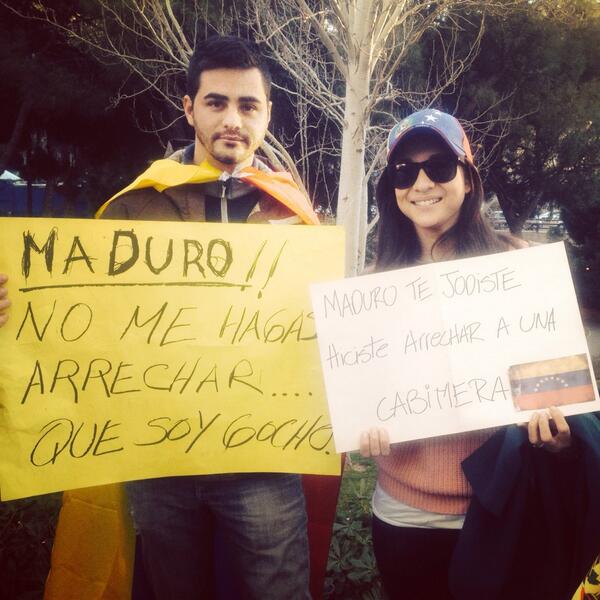 MADURO!!
NO ME HAGAS
ARRECHAR....
QUE SOY GOCHO.
MADURO TE JODISTE
Hiciste Arrechar A UNA
CABIMERA